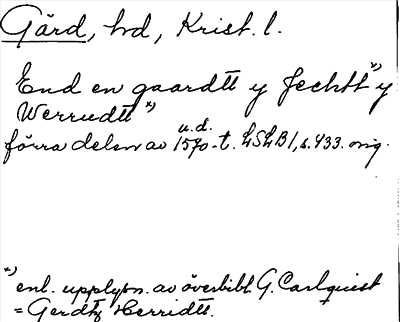 Gärd, hd, Krist. l.
End en gaardtt y Fechtt *) y
Werrudtt *)
u.d.
förra delen av 1570-t. hSkB1, s. 433. orig.
*) enl. upplysn. av överbibl. G. Carlquist
= Gerdtz Herridtt.